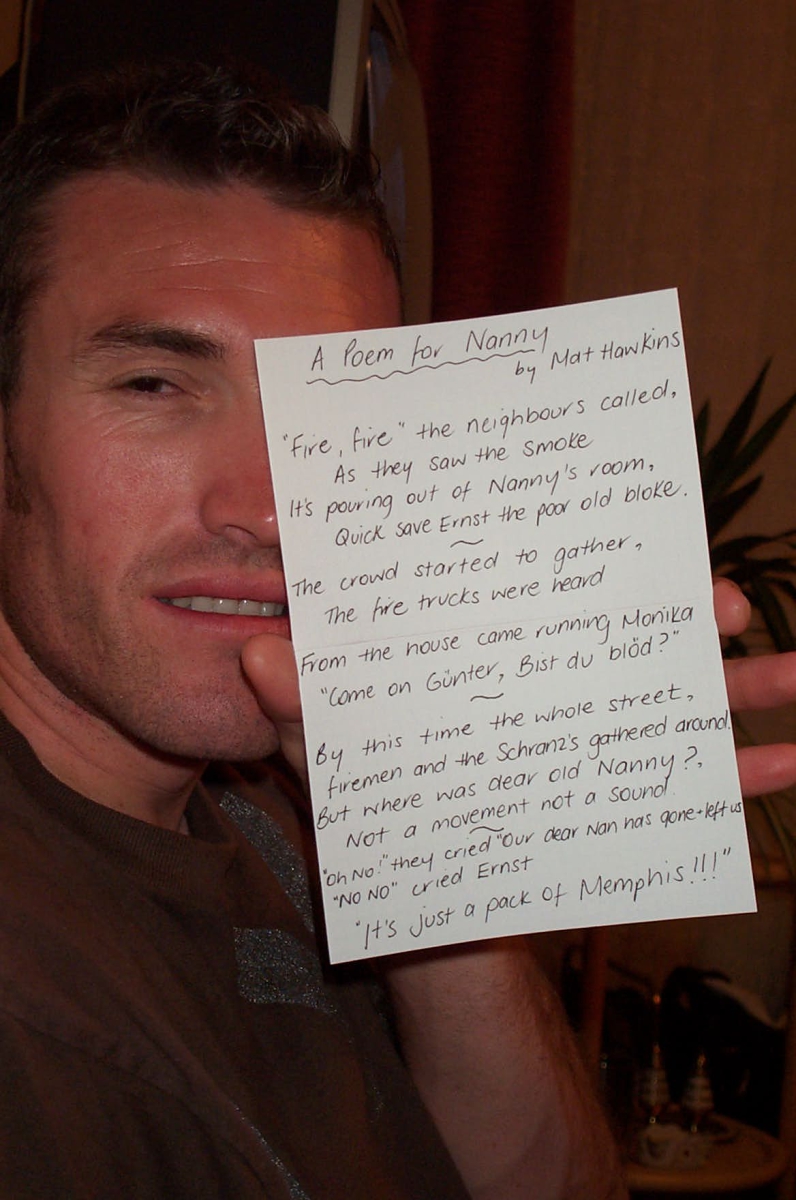 A Poem for Nanny
by Mat Hawkins
"Fire, fire" the neighbours called,
As they saw the smoke
It's pouring out of Nanny's room,
Quick save Ernst the poor old bloke.
The crowd started to gather,
The fire trucks were heard
From the house came running Monika
"Come on Günter, Bist du blöd?"
By this time the whole street,
firemen and the Schranz's gathered around.
But where was dear old Nanny?,
Not a movement not a sound.
"Oh No!" they cried "Our dear Nan has gone + left us
"NO NO" cried Ernst
"It's just a pack of Memphis!!!"